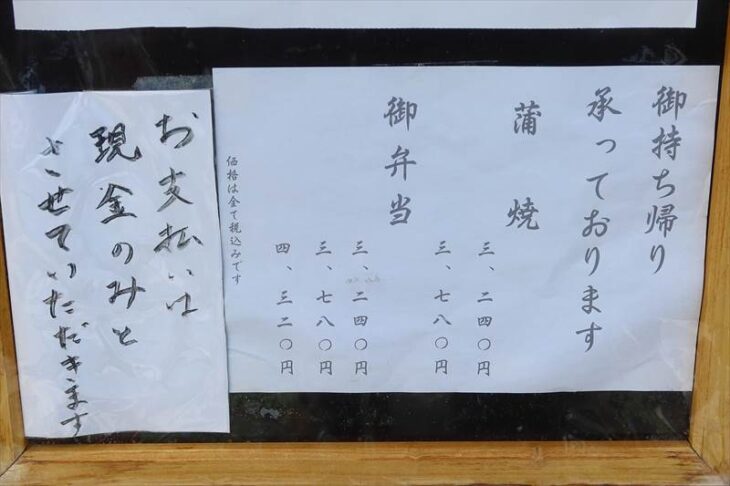 御持ち帰り
承っております
蒲焼
三、二四〇円
三、七八〇円
御弁当
三、二四〇円
三、七八〇円
四、三二〇円
価格は全て税込みです
お支払いは
現金のみと
させていただきます